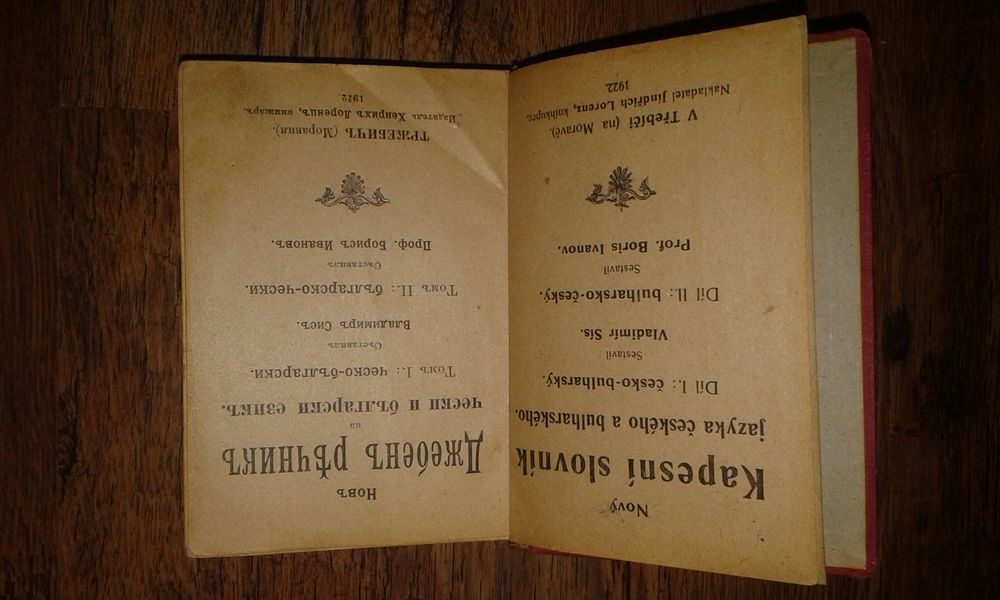 Nový
Kapesní slovník
jazyka českého a bulharského.
Díl I.: česko-bulharský.
Sestavil
Vladimír Sís.
Díl II.: bulharsko-český.
Sestavil
Prof. Boris Ivanov.
V Třebíči (na Moravě).
Nakladatel Jindřich Lorenz, knihkupec.
1922.
Новъ
Джебенъ рѣчникъ
на
чески и български езикъ.
Томъ I.: ческо-български.
Съставилъ
Владимиръ Сисъ.
Томъ II.: българско-чески.
Съставилъ
Проф. Борисъ Ивановъ.
ТРЖЕБИЧЪ (Моравия).
Издатель Хенрихъ Лоренцъ, книжаръ.
1922.